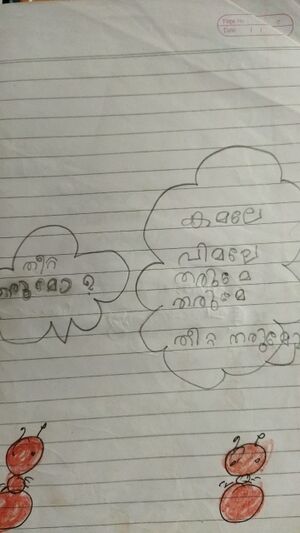 Page No.
Date
കമലേ
വിമലേ
തരുമേ
തരുമേ
തീറ്റ തരുമോ
തീറ്റ
തരുമോ ?